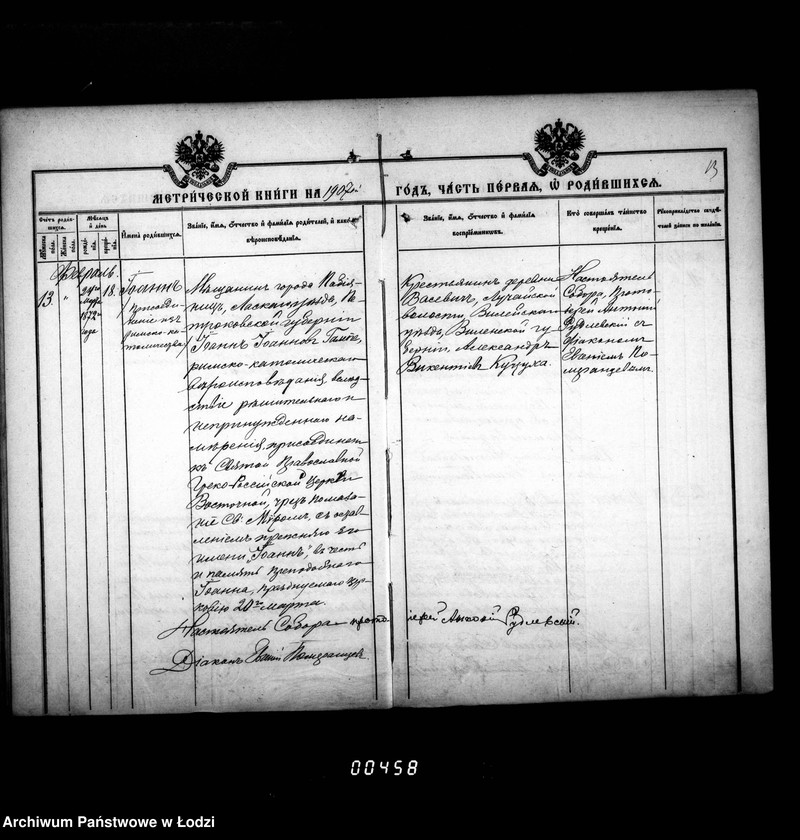 13
МЕТРИ́ЧЕСКОЙ КНИ́ГИ НА 1907й
ГО́ДЪ, ЧА́СТЬ ПЕ́РВАЯ, Ѽ РОДИ́ВШИХСЯ.
Счетъ родившихся.
Мужеска пола.
Женска пола.
Мѣсяцъ и день
рожденія.
крещенія.
Имена родившихся.
Званіе, имя, отчество и фамилія родителей, и какого
вѣроисповѣданія.
Званіе, имя, отчество и фамилія
воспріемниковъ.
Кто совершалъ таинство
крещенія.
Рукоприкладство свидѣтелей записи по желанію.
Февраль.
13.
"
1872
года
18.
Іоаннъ
(присоединеніе изъ
римско-католичества)
Мѣщанинъ города Пабіяницъ, Ласкаго уѣзда, Петроковской губерніи
Іоаннъ Іоанновъ
римско-католическаго
вѣроисповѣданія, вслѣдствіи рѣшительнаго и
непринужденнаго намѣренія, присоединенъ
къ Святой Православной
Греко-Россійской Церкви
Восточной, чрезъ помазаніе Св. Мѵромъ, съ оставленіемъ прежняго его
имени "Іоаннъ", въ честь
и память преподобнаго
Іоанна, празднуемаго Церковію 20го марта.
Крестьянинъ деревни
Васевичъ, Лучайской
волости, Вилейскаго
уѣзда, Виленской губерніи, Александръ
Викентіевъ Кучуха.
Настоятель
Собора, Протоіерей Антоній
Рудлевскій съ
діакономъ
Евѳиміемъ Померанцевымъ.
Настоятель Собора протоіерей Антоній Рудлевскій.
Діаконъ Померанцевъ.
00458
Archiwum Państwowe w Łodzi